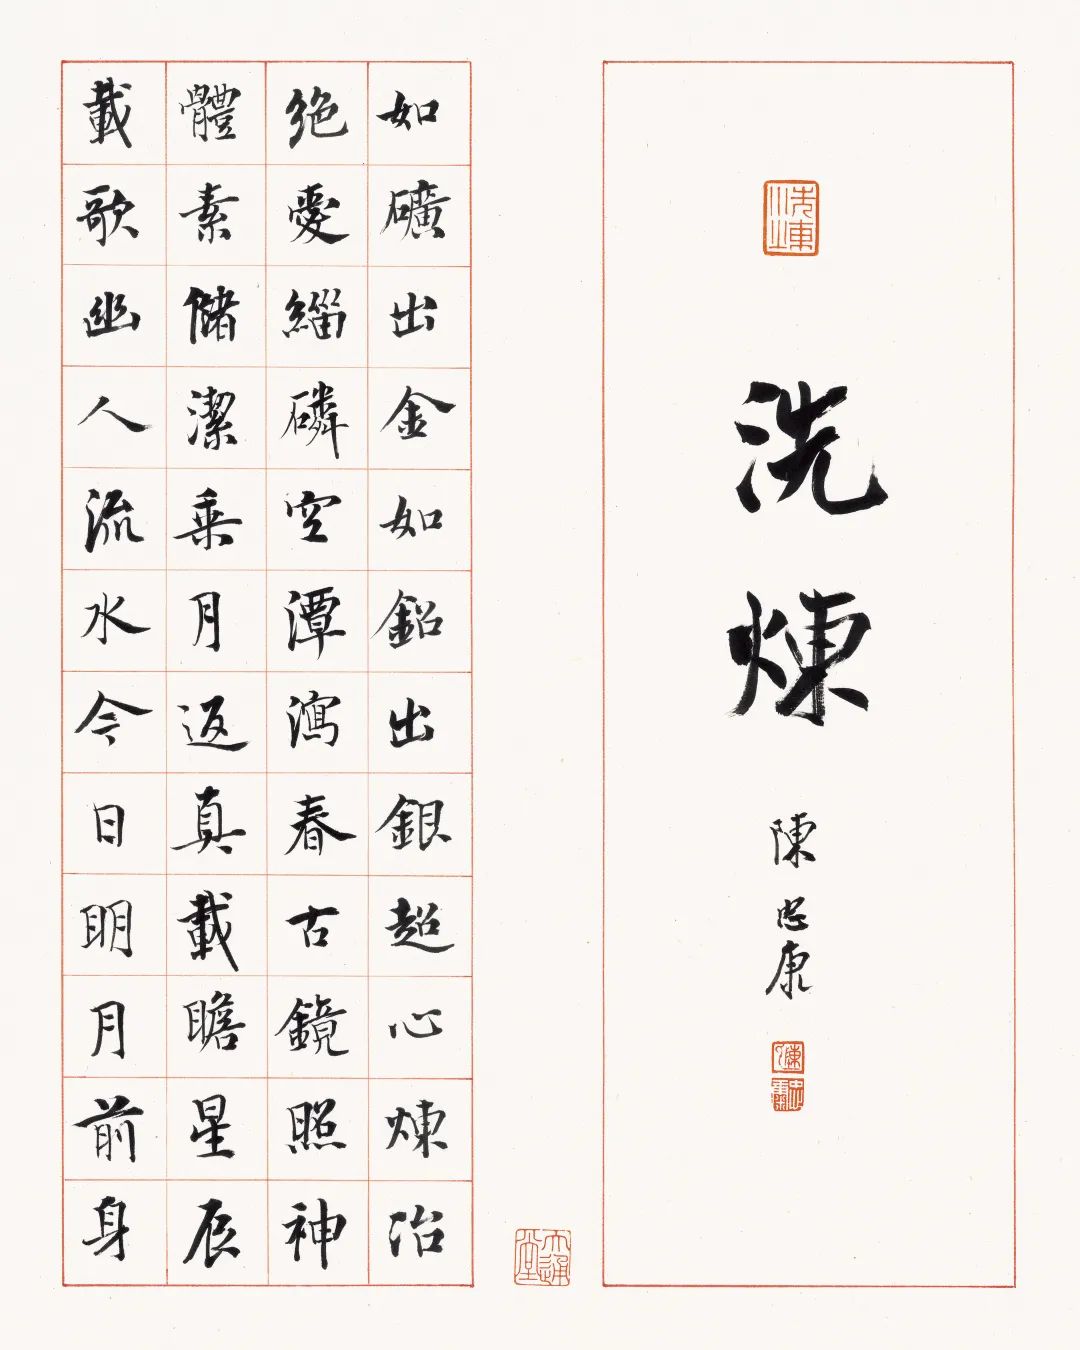 洗煉
陳忠康
如礦出金如鉛出銀超心煉冶
絶愛緇磷空潭瀉春古鏡照神
體素儲潔乘月返真載瞻星辰
載歌幽人流水今日明月前身